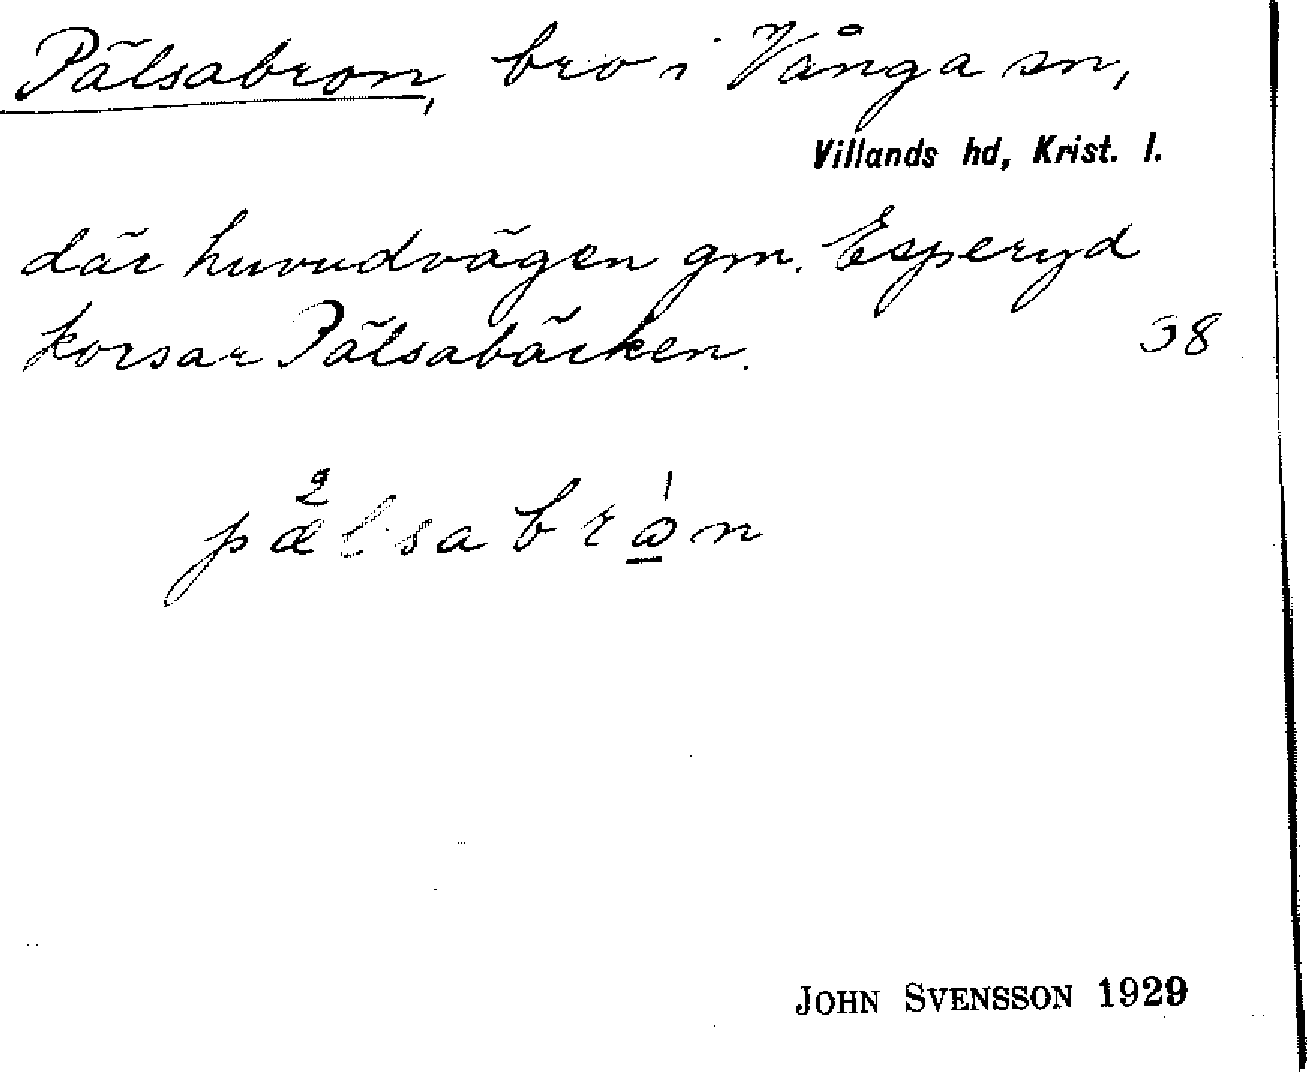 Pälsabron, bro i Vånga sn,
Villands hd, Krist. l.
där huvudvägen gm. Esperyd
korsar Pälsabäcken. 38
pælsabrón
JOHN SVENSSON 1929